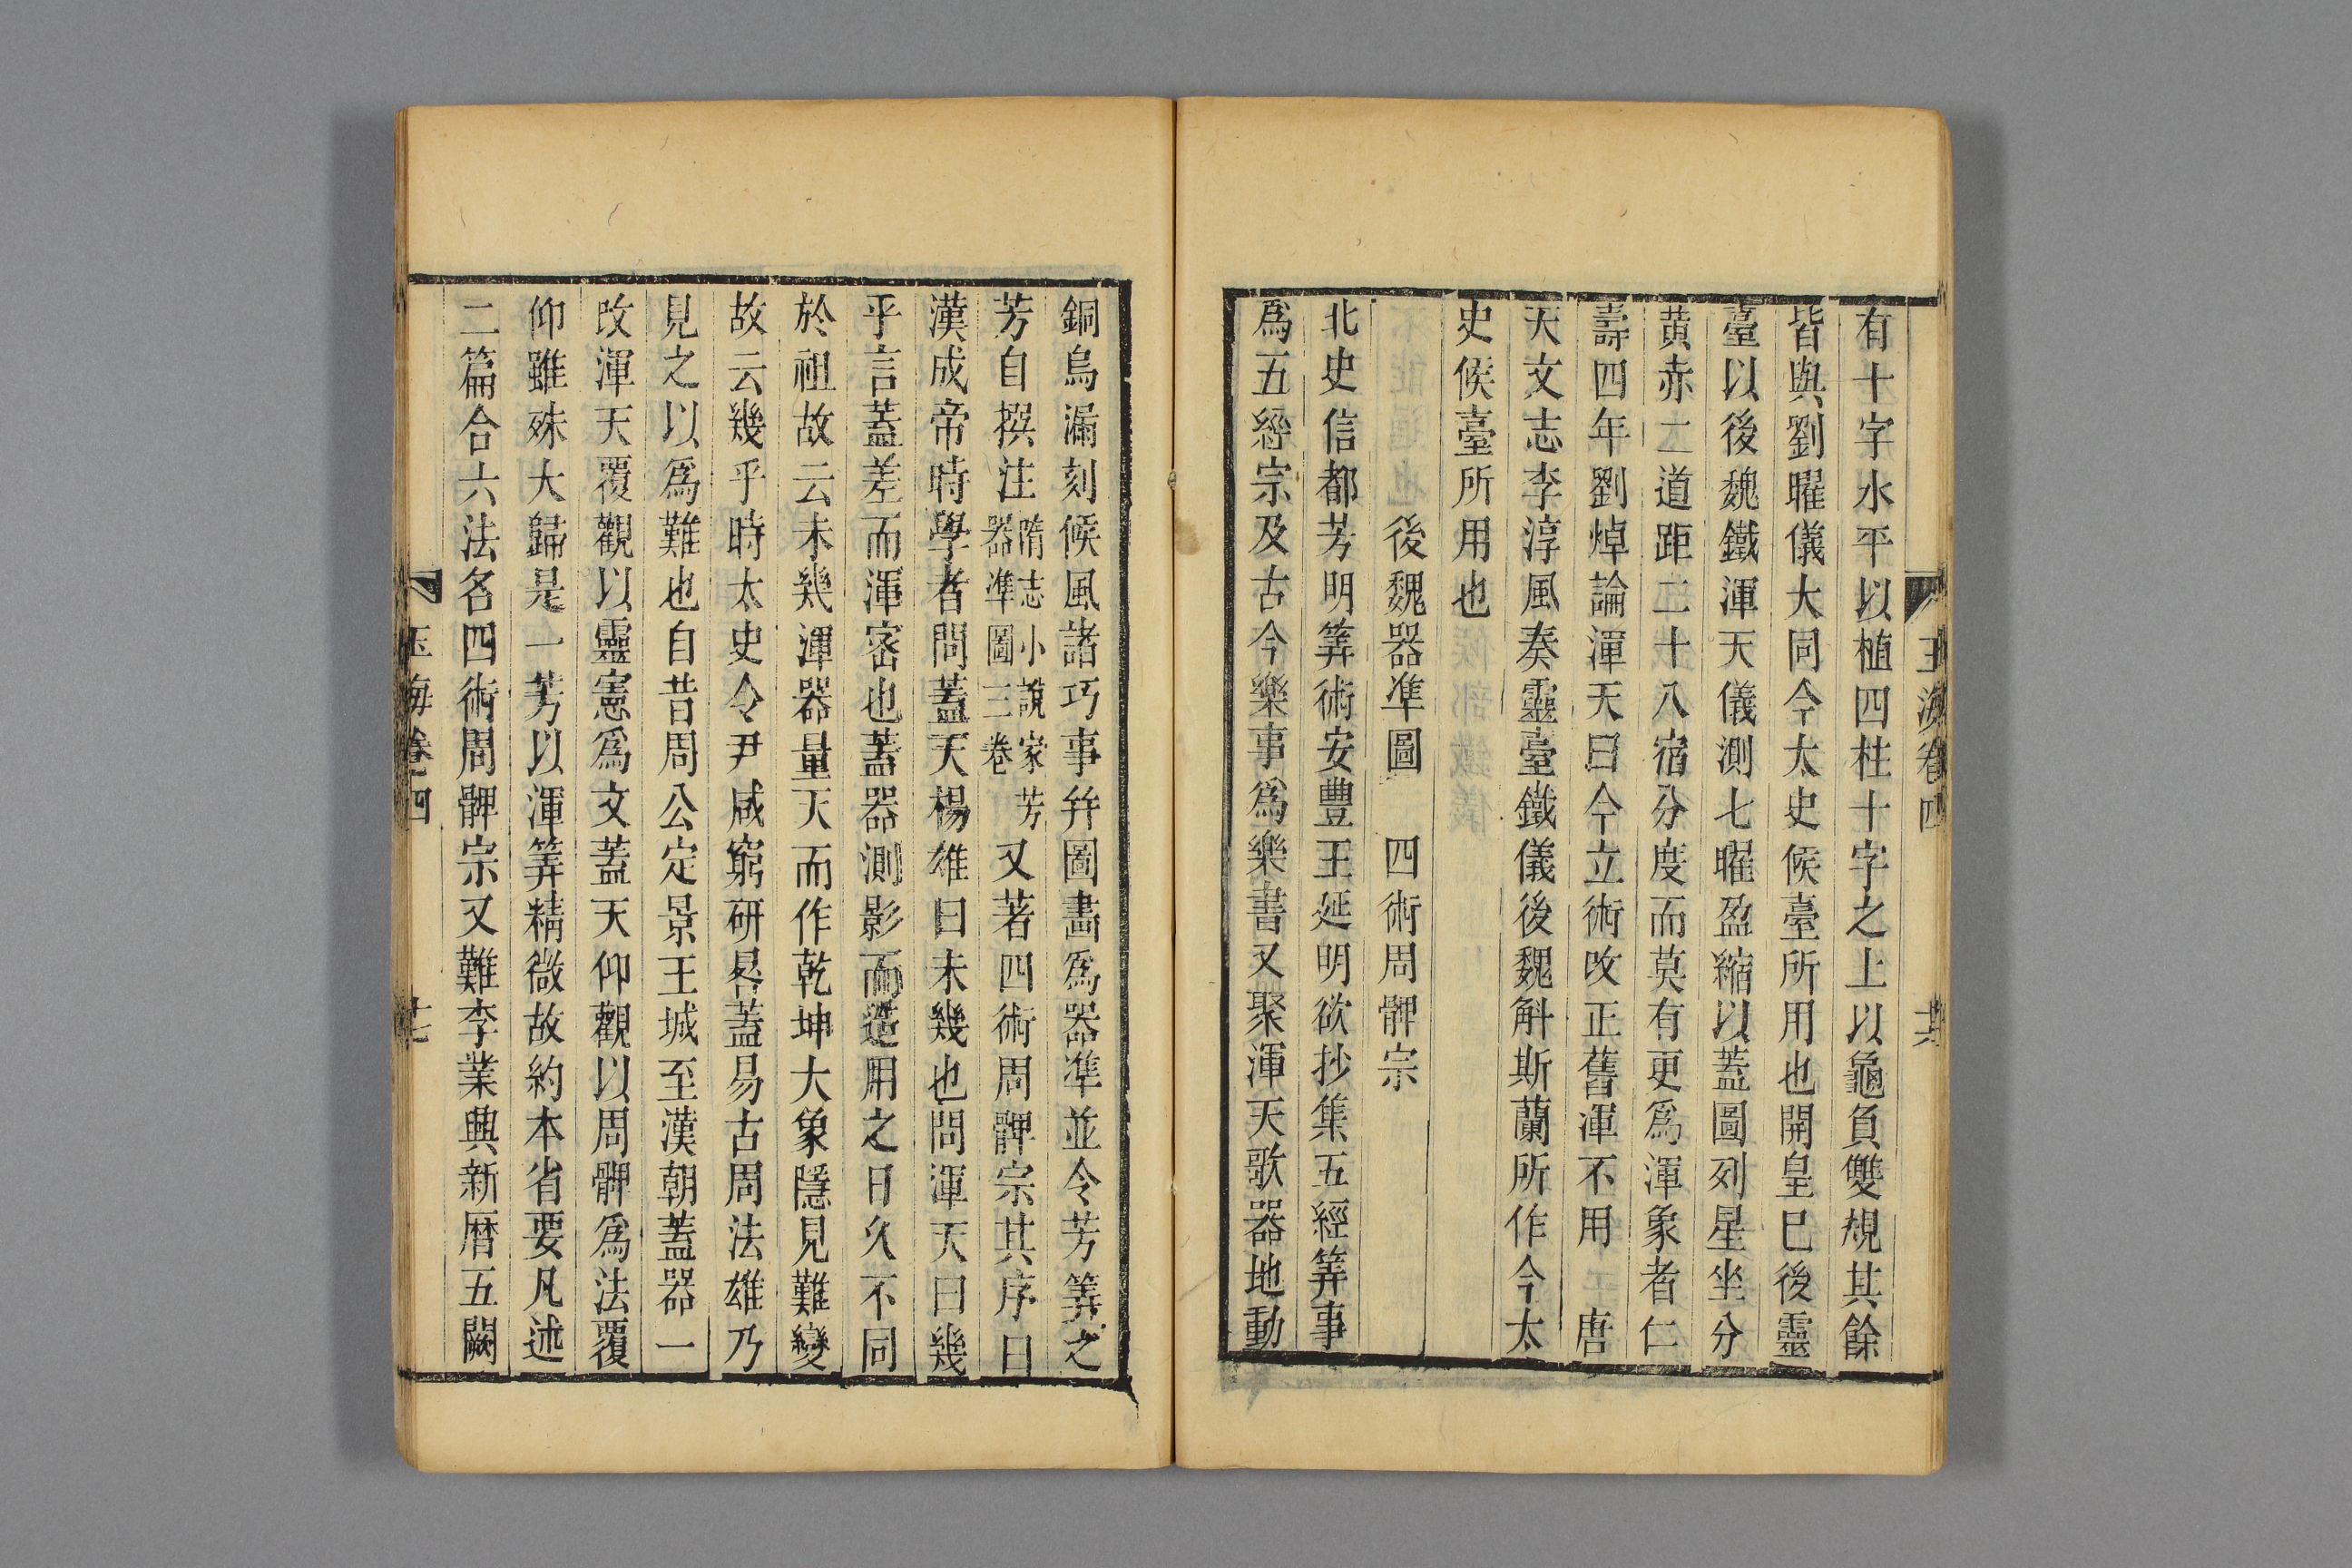 玉海卷四
有十字水平以植四柱十字之上以龜負雙規其餘
皆與劉曜儀大同今太史候臺所用也開皇已後靈
臺以後魏鐵渾天儀測七曜盈縮以蓋圖列星坐分
黃赤二道距二十八宿分度而莫有更爲渾象者仁
壽四年劉焯論渾天曰今立術改正舊渾不用 唐
天文志李淳風奏靈臺鐵儀後魏斛斯蘭所作今太
史候臺所用也
後魏器準圖 四術周髀宗
北史信都芳明筭術安豐王延明欲抄集五經筭事
爲五經宗及古今樂事爲樂書又聚渾天欹器地動
銅烏漏刻候風諸巧事并圖畫爲器準並令芳筭之
芳自撰注隋志小說家芳器準圖三卷又著四術周髀宗其序曰
漢成帝時學者問蓋天楊雄曰未幾也問渾天曰幾
乎言蓋差而渾密也蓋器測影而造用之日久不同
於祖故云未幾渾器量天而作乾坤大象隱見難變
故云幾乎時太史令尹咸窮研晷蓋易古周法雄乃
見之以爲難也自昔周公定景王城至漢朝蓋器一
改渾天覆觀以靈憲爲文蓋天仰觀以周髀爲法覆
仰雖殊大歸是一芳以渾筭精微故約本省要凡述
二篇合六法名四術周髀宗又難李業興新曆五闕
玉海卷四 廿七